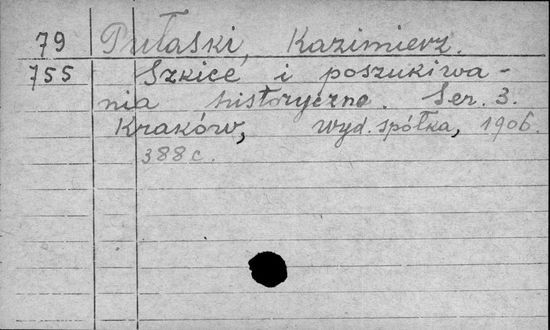 79 Pułaski, Kazimierz.
755 Szkice i poszukiwa-
nia historyczne. Ser. 3.
Kraków, wyd. spółka, 1906.
388 c.